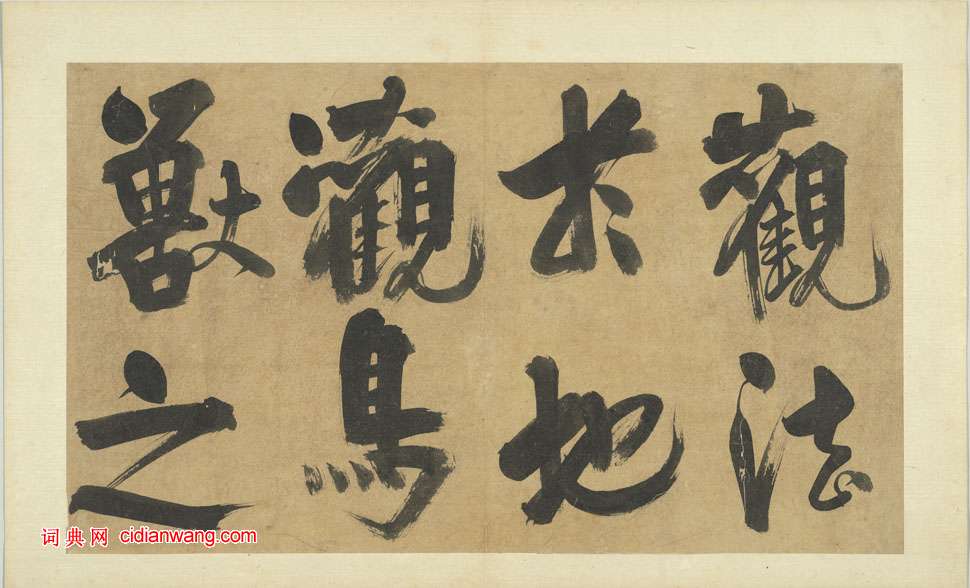 觀法
於地
觀鳥
獸之
词典网 cidianwang.com